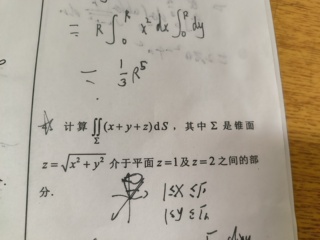 = R∫₀ᴿ x² dx ∫₀ᴿ dy
= 1/3 R⁵
计算∬_Σ(x+y+z)dS，其中Σ是锥面
z=√(x²+y²) 介于平面z=1及z=2之间的部
分.
1≤X≤
1≤y≤